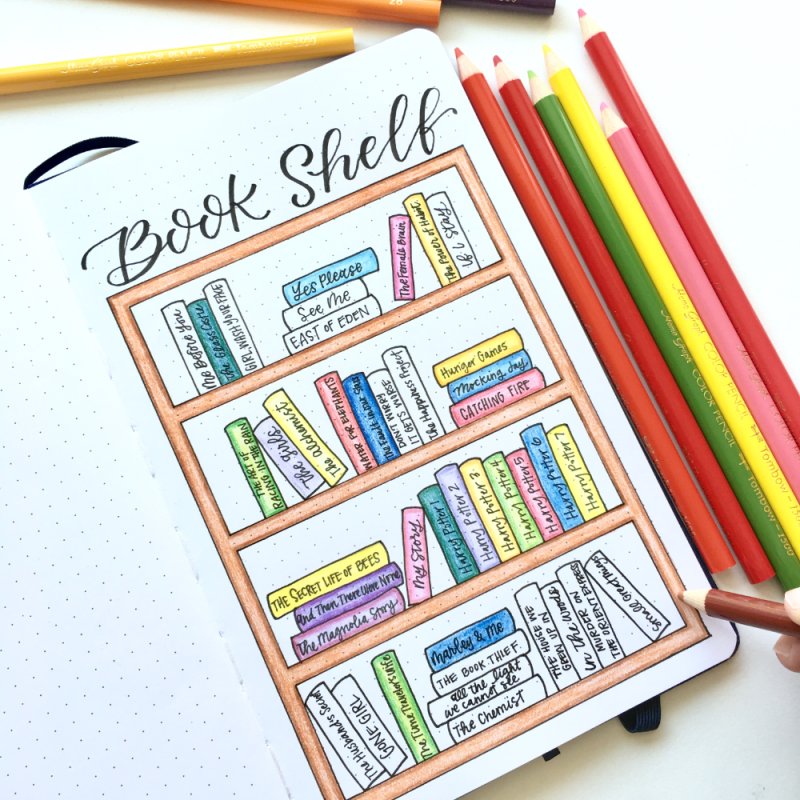 Book Shelf
Me Before You
GIRL, WASH YOUR FACE
Yes Please
See Me
EAST OF EDEN
The Female Brain
The Power of Habit
If I Stay
THE ART OF
RACING IN THE RAIN
The girls
The alchemist
WATER FOR ELEPHANTS
The Fault in our Stars
DON'T WORRY
IT GETS WORSE
The Happiness Project
Hunger Games
Mocking Jay
CATCHING FIRE
THE SECRET LIFE OF BEES
And Then There Were None
The Magnolia Story
Harry Potter 1
Harry Potter 2
Harry Potter 3
Harry Potter 4
Harry Potter 5
Harry Potter 6
Harry Potter 7
The Husband's Secret
GONE GIRL
The Time Traveler's Wife
Marley & Me
THE BOOK THIEF
all the light
we cannot see
The Chemist
THE HOUSE WE
GREW UP IN
In The Woods
MURDER ON
THE ORIENT EXPRESS
Small Great Things
COLOR PENCIL
Tombow - 1500